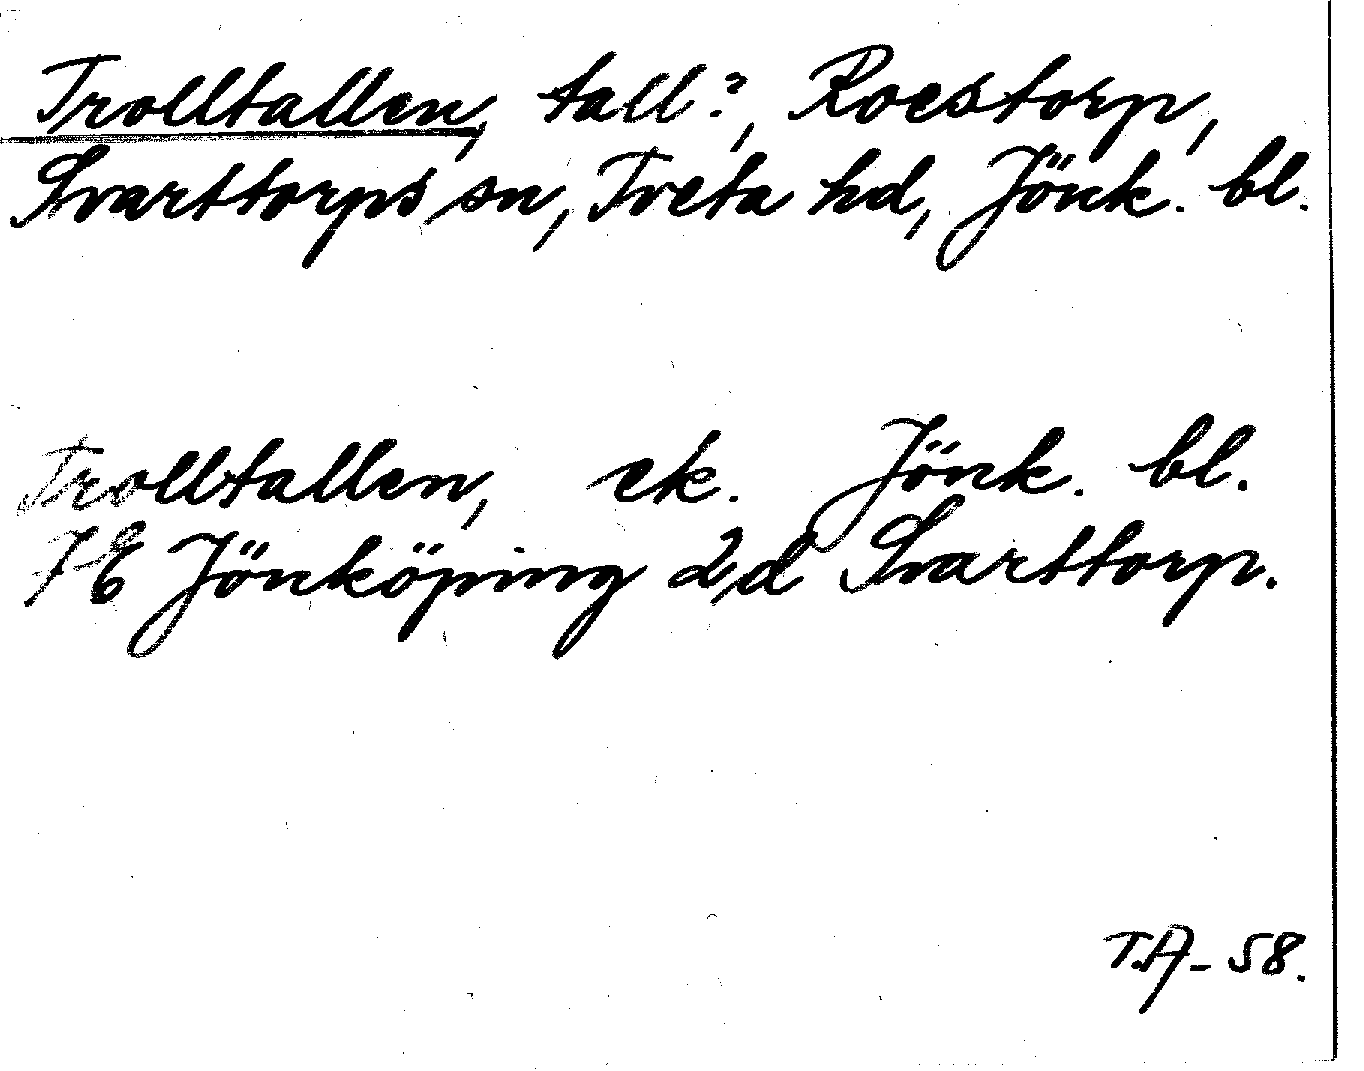 Trolltallen, tall?, Roestorp,
Svarttorps sn, Tveta hd, Jönk. bl.
Trolltallen, ek. Jönk. bl.
7E Jönköping 2d Svarttorp.
T.A-58.